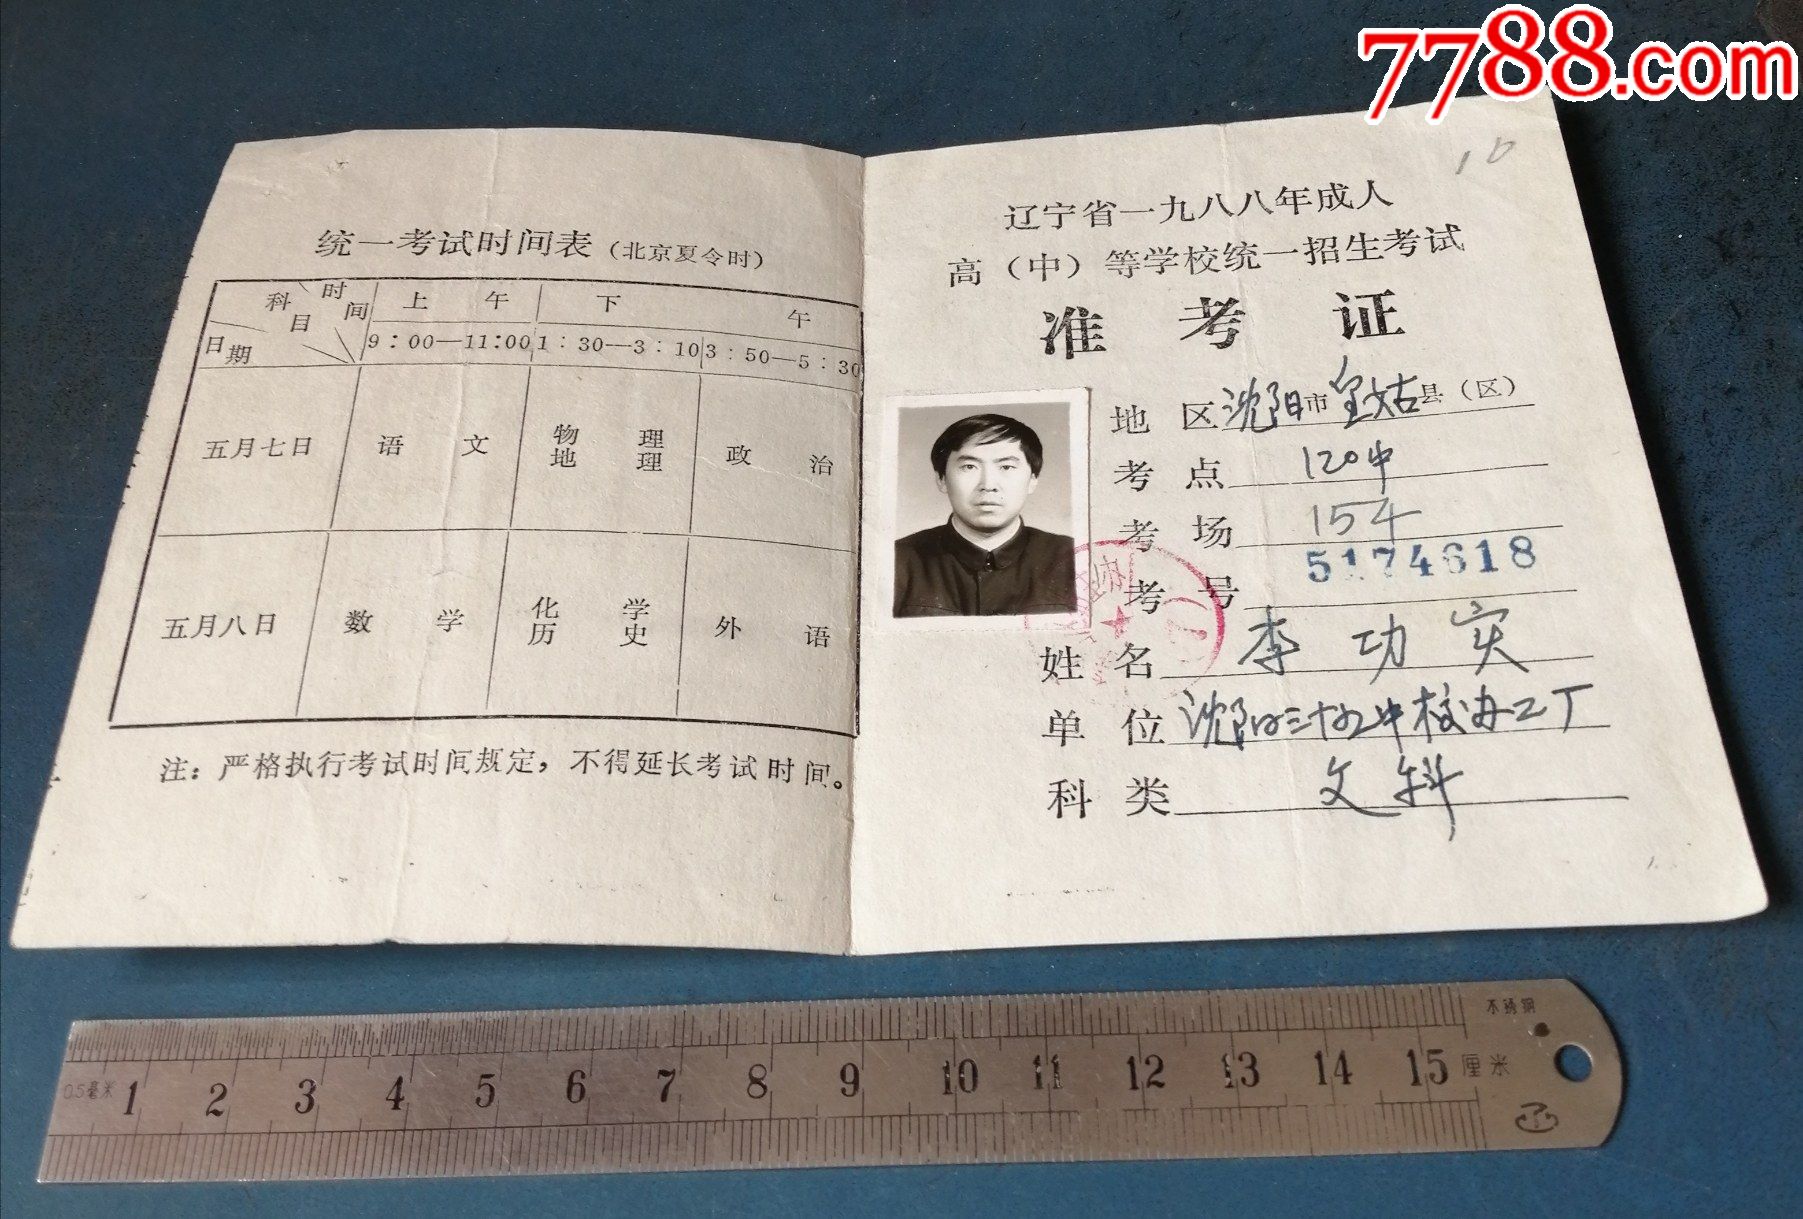 7788.com
统一考试时间表（北京夏令时）
时间
科目
日期
上午
下午
9：00—11：00
1：30—3：10
3：50—5：30
五月七日
语文
物理
地理
政治
五月八日
数学
化学
历史
外语
注：严格执行考试时间规定，不得延长考试时间。
16
辽宁省一九八八年成人
高（中）等学校统一招生考试
准考证
地区沈阳市皇姑县（区）
考点120中
考场154
考号5174618
姓名李功实
单位沈阳市三十五中校办工厂
科类文科
不锈钢
0.5毫米 1 2 3 4 5 6 7 8 9 10 11 12 13 14 15 厘米